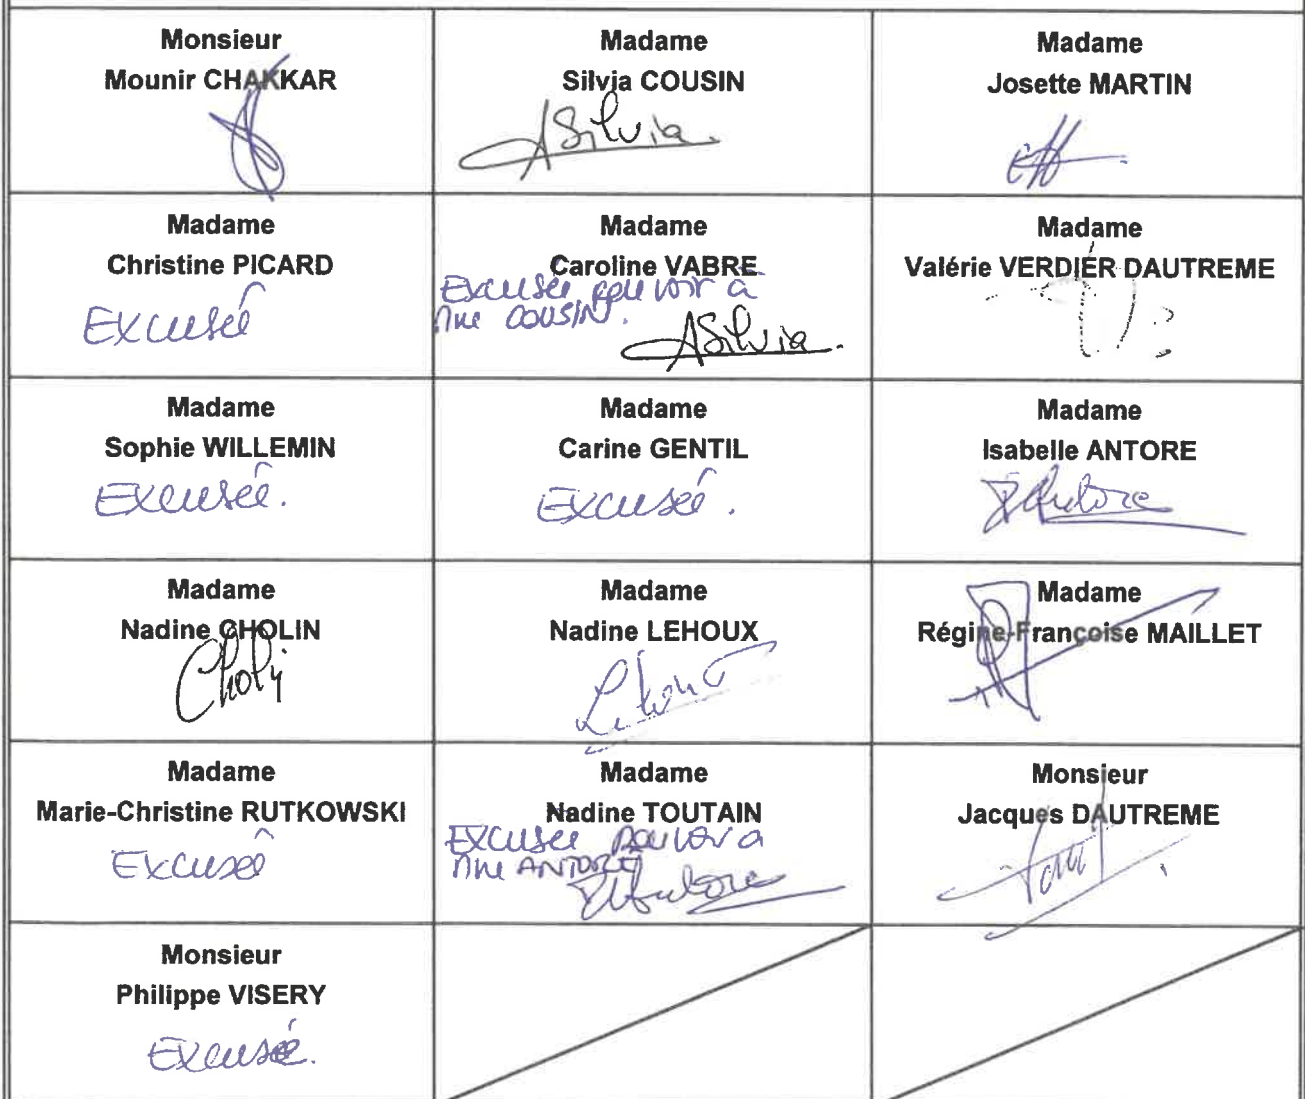 Monsieur
Mounir CHAKKAR
Madame
Silvia COUSIN
ASilvia
Madame
Josette MARTIN
Madame
Christine PICARD
Excusée
Madame
Caroline VABRE
Excusée, pouvoir à
Mme COUSIN.
ASilvia
Madame
Valérie VERDIER DAUTREME
Madame
Sophie WILLEMIN
Excusée.
Madame
Carine GENTIL
Excusée.
Madame
Isabelle ANTORE
Antore
Madame
Nadine CHOLIN
Madame
Nadine LEHOUX
Madame
Régine-Françoise MAILLET
Madame
Marie-Christine RUTKOWSKI
Excusée
Madame
Nadine TOUTAIN
Excusée pouvoir à
Mme ANTORE
Antore
Monsieur
Jacques DAUTREME
Monsieur
Philippe VISERY
Excusé.